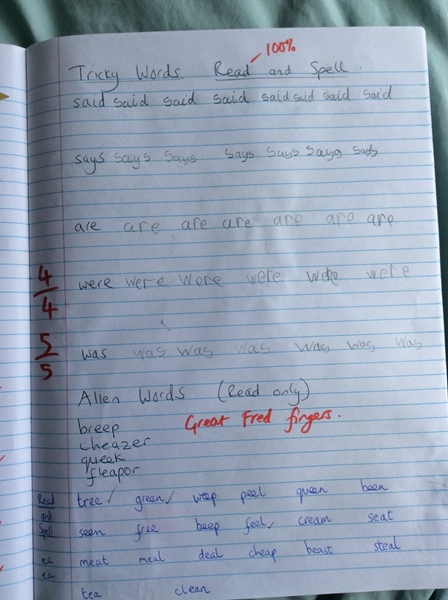 100%
Tricky Words. Read and Spell.
said said said said said said said said
says says says says says says says
are are are are are are are
4/4
were were were were were were
5/5
was was was was was was was
Alien Words (Read only)
breep Great Fred fingers.
cheazer
queak
fleapor
Read tree ✓ green ✓ weep peel queen been
and
Spell seen free beep feel ✓ cream seat
ee meat meal deal cheap beast steal
ea
tea clean